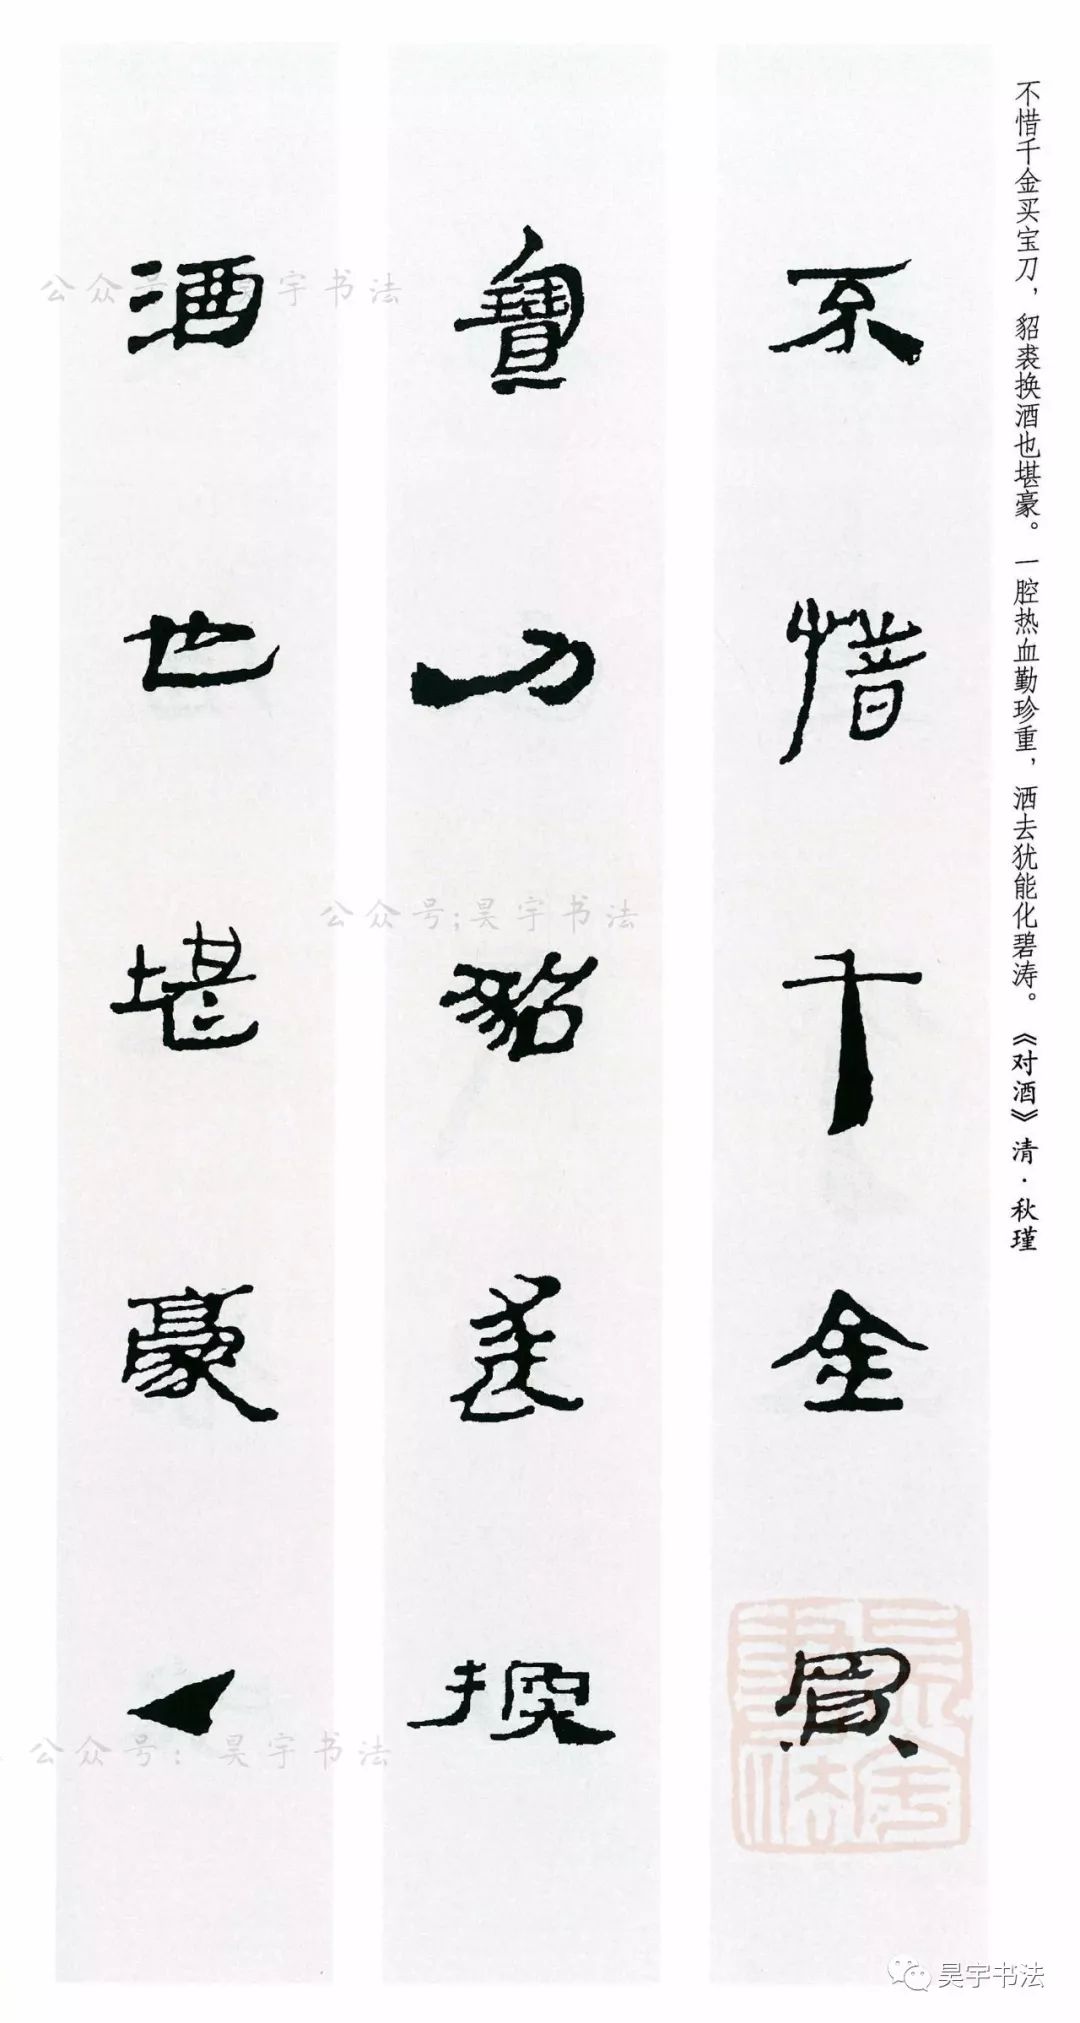 不惜千金买宝刀，貂裘换酒也堪豪。一腔热血勤珍重，洒去犹能化碧涛。《对酒》清·秋瑾
不惜千金買
寶刀貂裘換
酒也堪豪一
公众号;昊宇书法
公众号;昊宇书法
公众号：昊宇书法
昊宇书法
昊宇书法